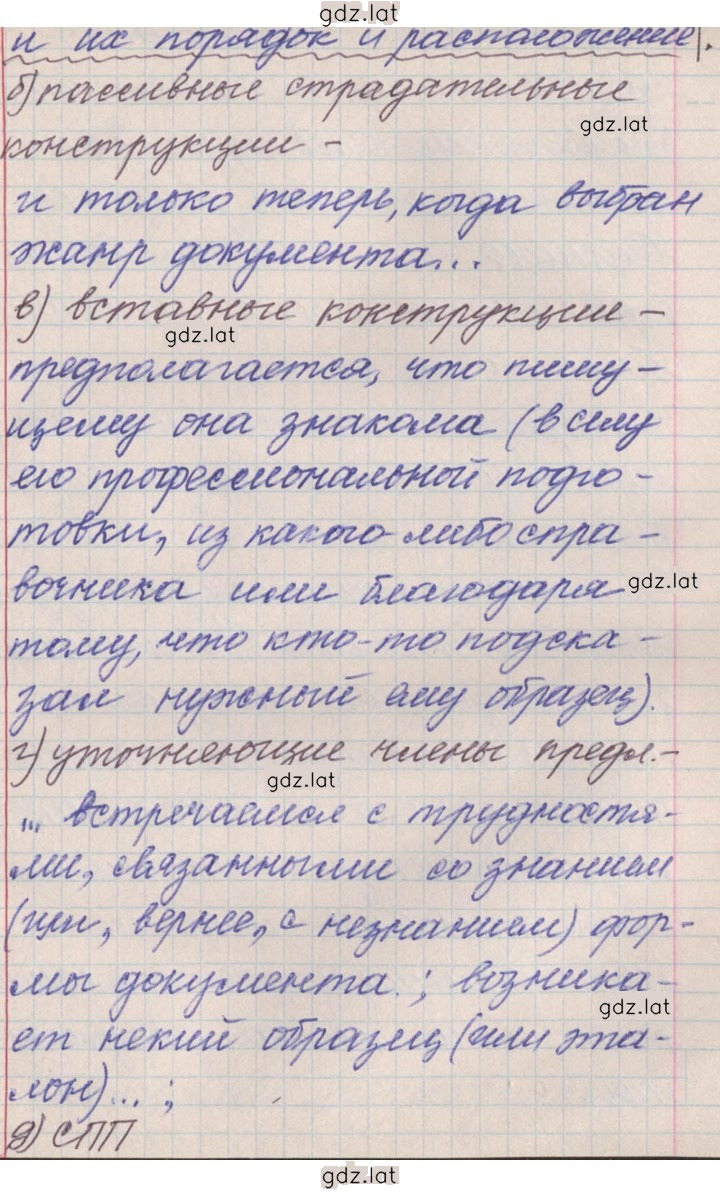 gdz.lat
и их порядок и расположение).
б) пассивные страдательные
gdz.lat
конструкции -
и только теперь, когда выбран
жанр документа...
в) вставные конструкции -
gdz.lat
предполагается, что пишу-
щему она знакома (в силу
его профессиональной подго-
товки, из какого-либо спра-
вочника или благодаря
gdz.lat
тому, что кто-то подска-
зал нужный ему образец).
г) уточняющие члены предл.-
gdz.lat
... встречаемся с трудностя-
ми, связанными со знанием
(или, вернее, с незнанием) фор-
мы документа.; возника-
gdz.lat
ет некий образец (или эта-
лон)...;
д) СПП
gdz.lat